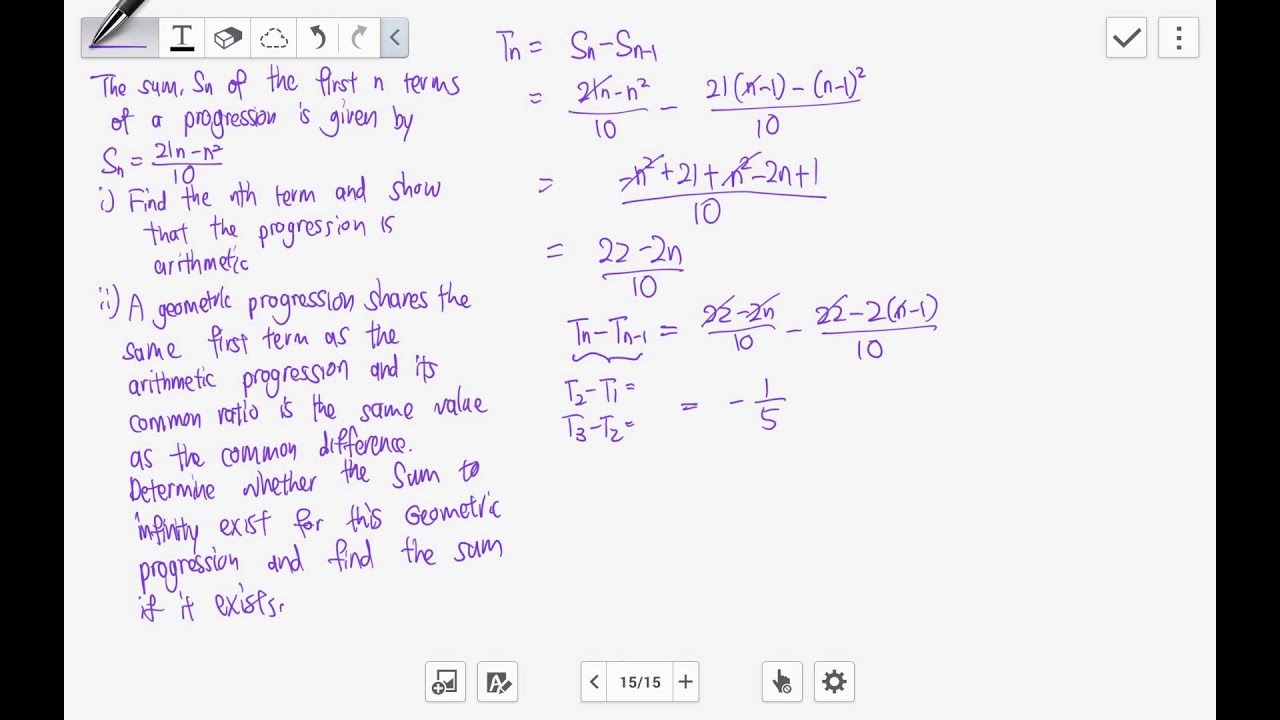 T
The sum, Sn of the first n terms
of a progression is given by
Sn = (21n - n²)/10
i) Find the nth term and show
that the progression is
arithmetic
ii) A geometric progression shares the
same first term as the
arithmetic progression and its
common ratio is the same value
as the common difference.
Determine whether the sum to
infinity exist for this Geometric
progression and find the sum
if it exists.
Tn = Sn - Sn-1
= (21n - n²)/10 - (21(n-1) - (n-1)²)/10
= (-n² + 21 + n² - 2n + 1)/10
= (22 - 2n)/10
Tn - Tn-1 = (22 - 2n)/10 - (22 - 2(n-1))/10
T2 - T1 =
T3 - T2 =
= -1/5
15/15